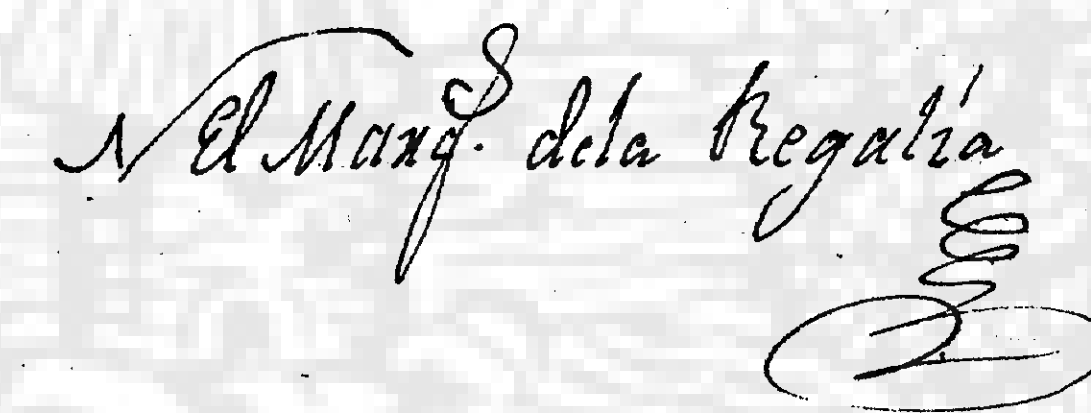 El Marq.s dela Regalía